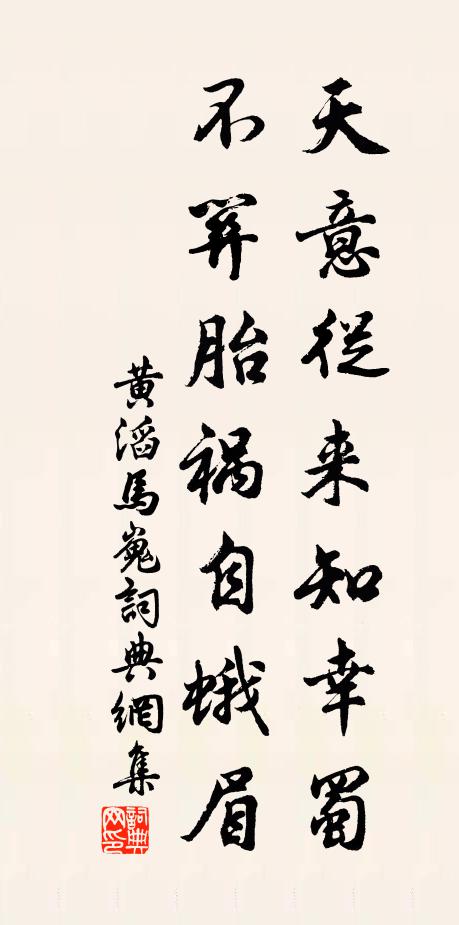 天意從来知幸蜀
不關胎禍自蛾眉
黄滔馬嵬詞典網集
詞典网印